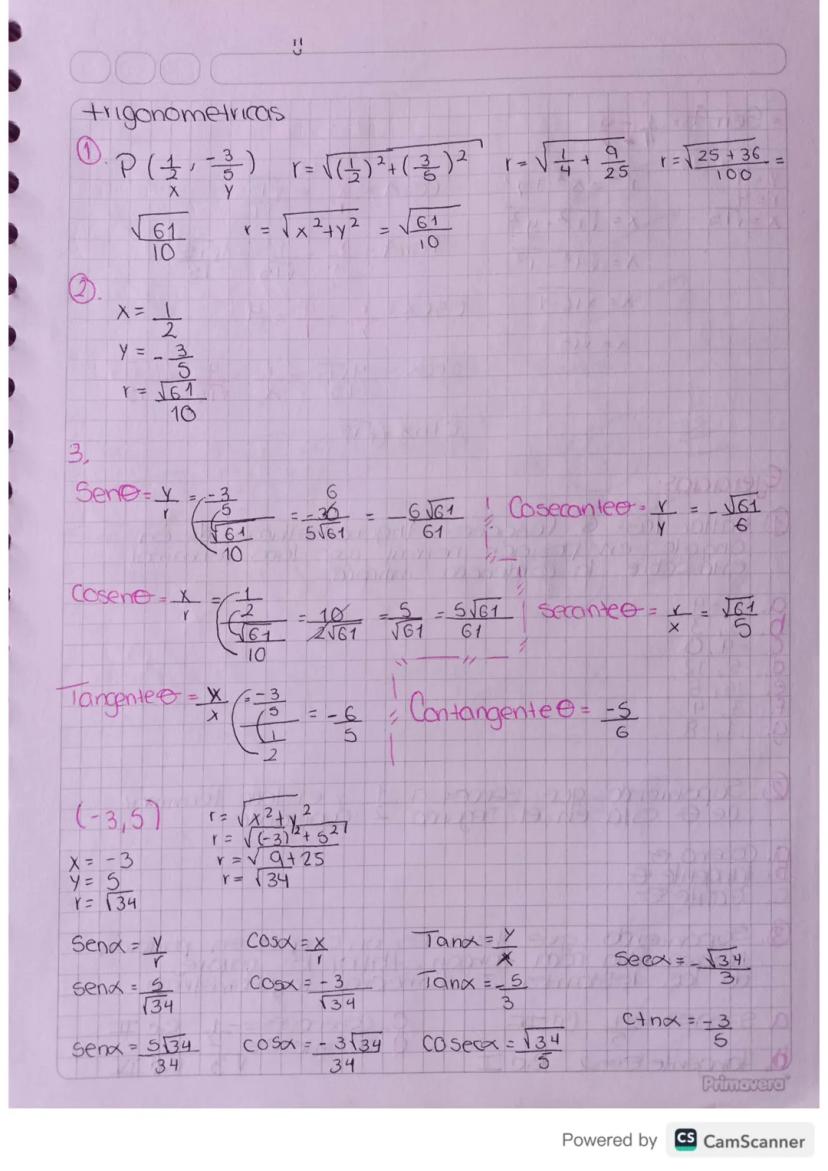 trigonometricas
①. P (1/2, -3/5) r = √((1/2)² + (3/5)²) r = √(1/4 + 9/25) r = √((25 + 36)/100) =
x y
√61/10 r = √(x² + y²) = √61/10
②.
x = 1/2
y = -3/5
r = √61/10
3.
Senθ = y/r = (-3/5)/(√61/10) = -30/5√61 6 = -6√61/61 Cosecanteθ = r/y = -√61/6
Cosenθ = x/r = (1/2)/(√61/10) = 10/2√61 = 5/√61 = 5√61/61 Secanteθ = r/x = √61/5
Tangenteθ = y/x = (-3/5)/(1/2) = -6/5 Contangenteθ = -5/6
(-3,5) r = √(x² + y²)
r = √((-3)² + 5²)
x = -3 r = √(9 + 25)
y = 5 r = √34
r = √34
Senα = y/r Cosα = x/r Tanα = y/x Secα = -√34/3
senα = 5/√34 Cosα = -3/√34 Tanα = -5/3
Ctnα = -3/5
senα = 5√34/34 cosα = -3√34/34 Cosecα = √34/5
Primavera
Powered by CS CamScanner